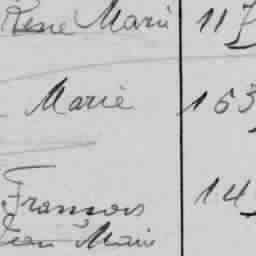 Rene Marie 117
Marie 153
Fransois 14
Jean Marie